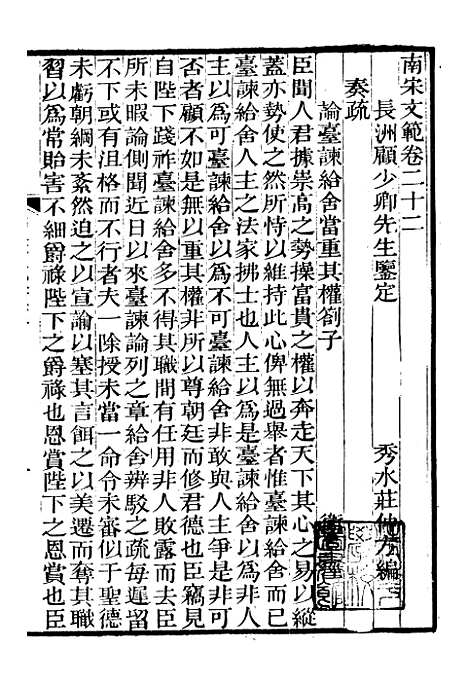 南宋文範卷二十二
長洲顧少卿先生鑒定　秀水莊仲方編
奏疏
論臺諫給舍當重其權劄子
臣聞人君據崇高之勢操富貴之權以奔走天下其心之易以縱
蓋亦勢使之然所恃以維持此心俾無過舉者惟臺諫給舍而已
臺諫給舍人主之法家拂士也人主以為是臺諫給舍以為非人
主以為可臺諫給舍以為不可臺諫給舍非敢與人主爭是非可
否者顧不如是無以重其權非所以尊朝廷而修君德也臣竊見
自陛下踐祚臺諫給舍多不得其職間有任用非人敗露而去臣
所未暇論側聞近日以來臺諫論列之章給舍辨駁之疏每遲留
不下或有沮格而不行者夫一除授未當一命令未審似于聖德
未虧朝綱未紊然迫之以宣諭以塞其言餌之以美遷而奪其職
習以為常貽害不細爵祿陛下之爵祿也恩賞陛下之恩賞也臣